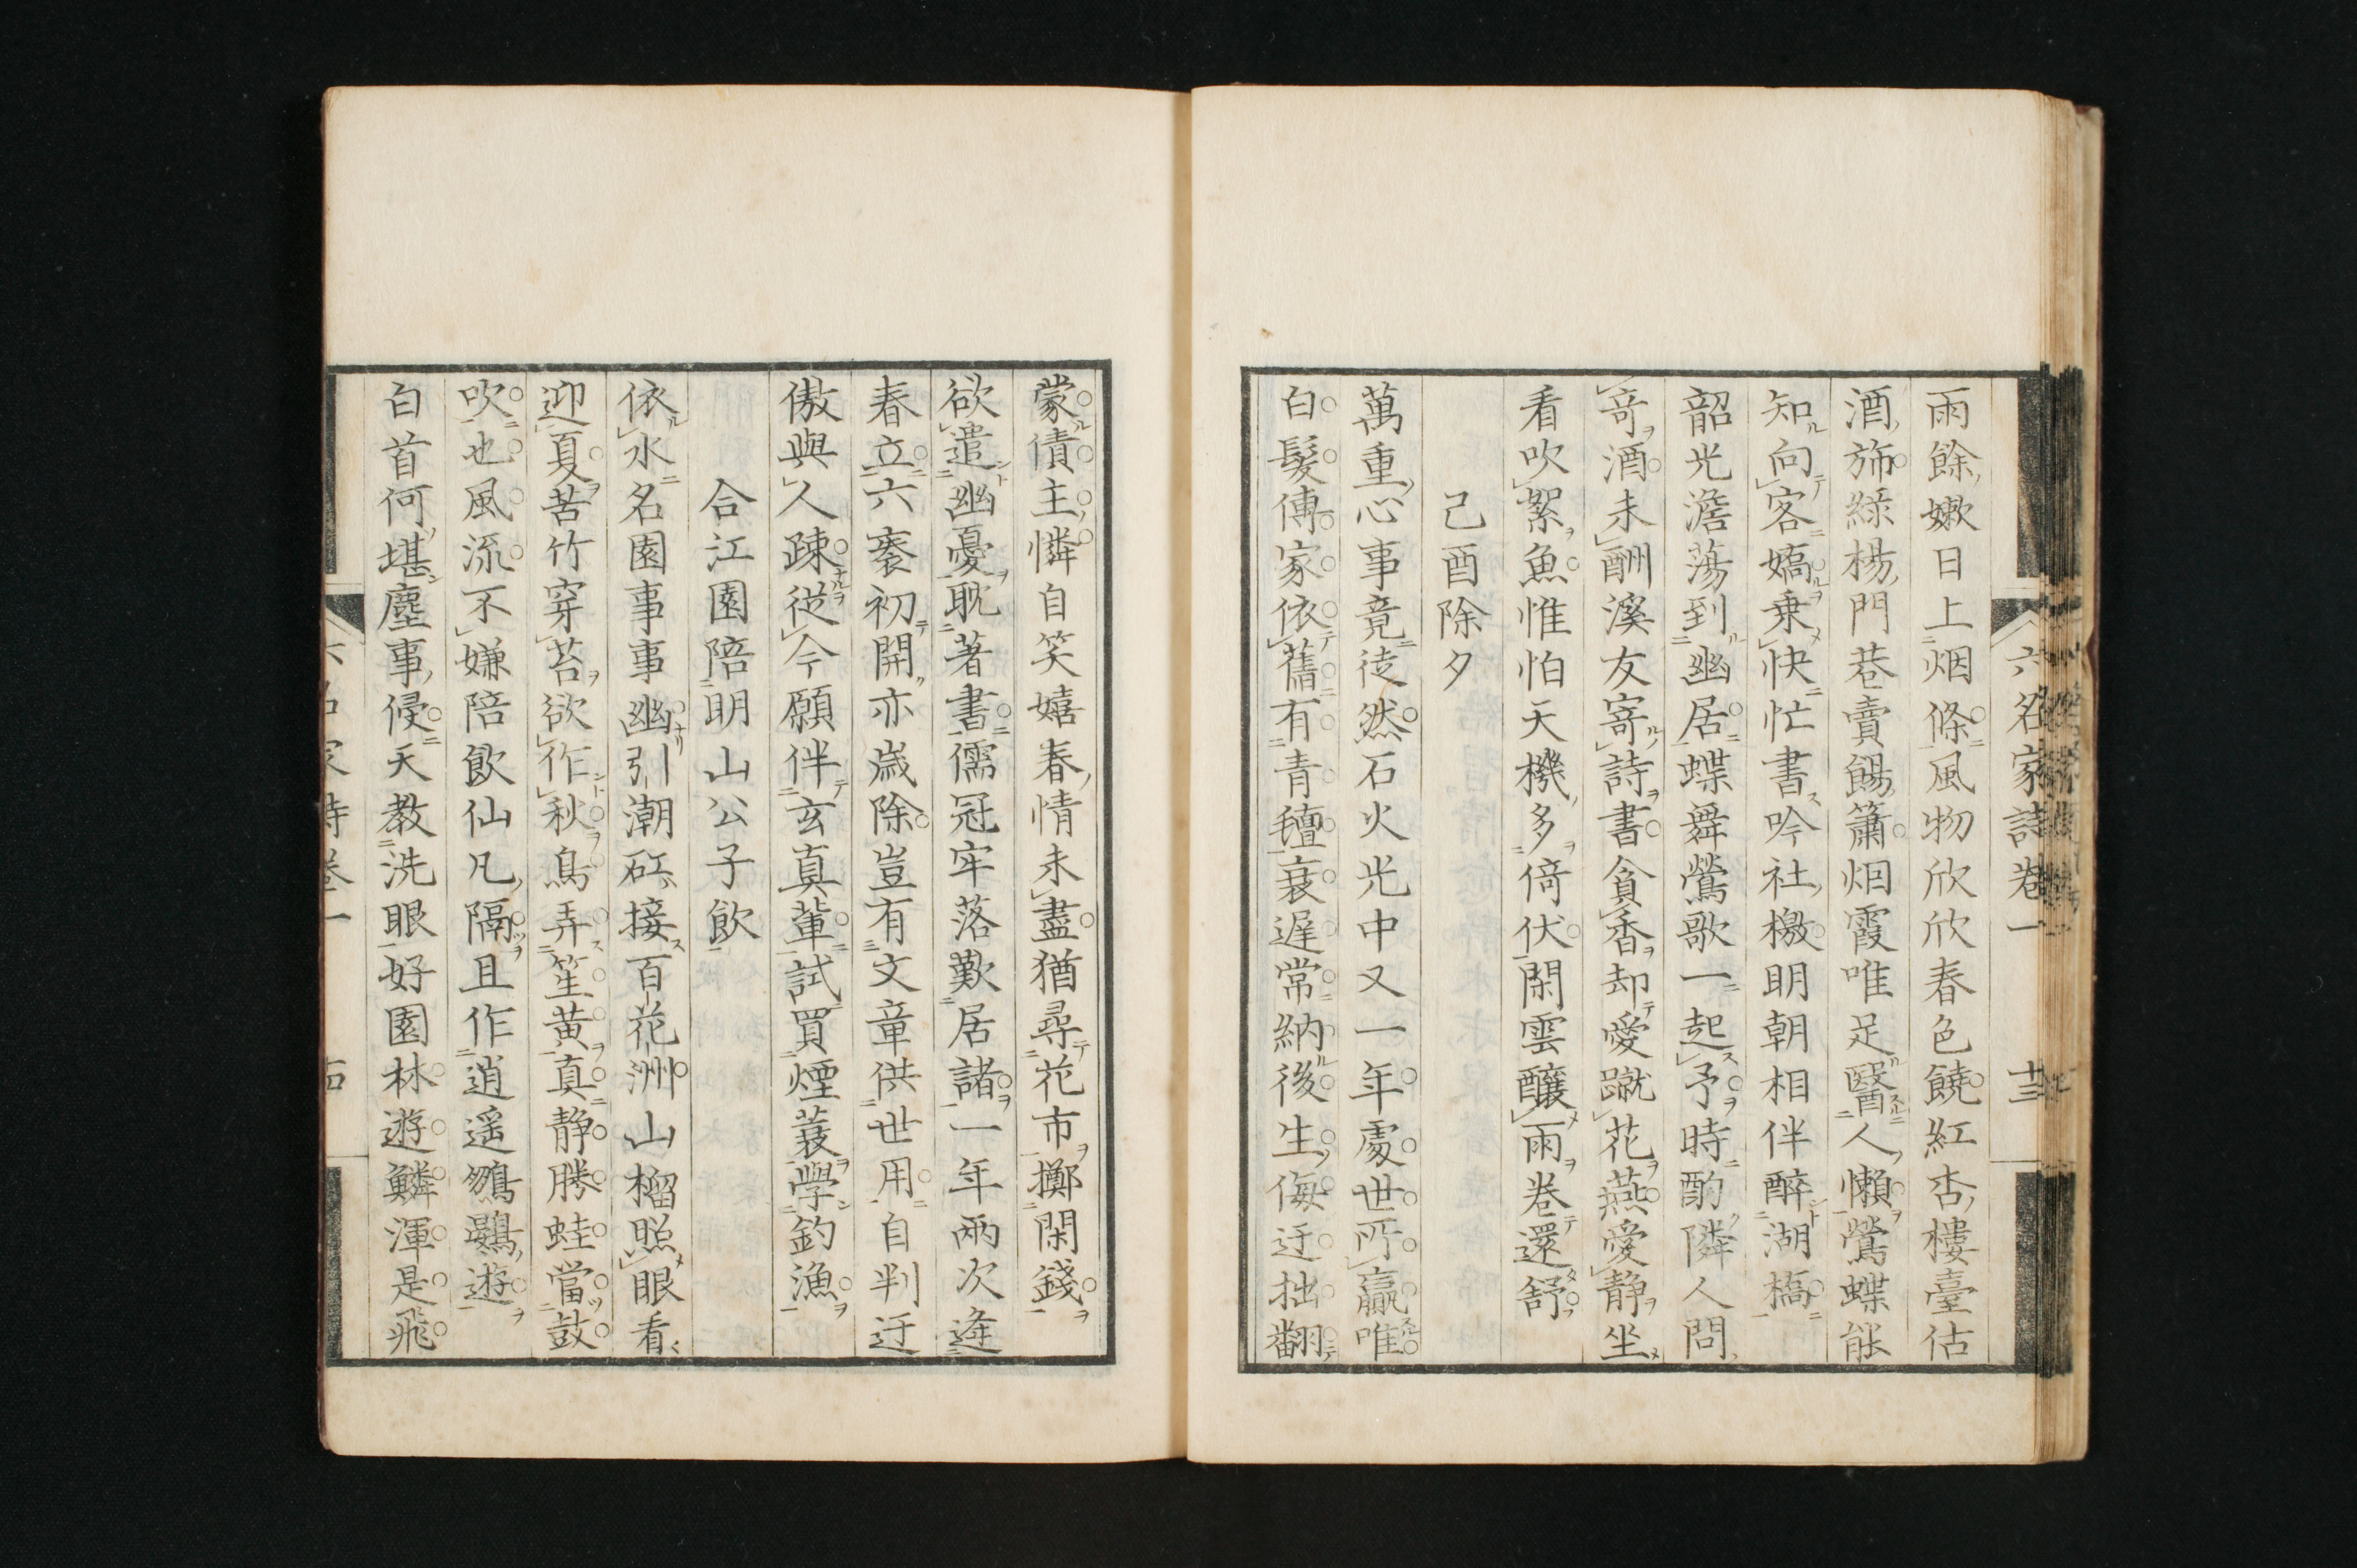 六名家詩卷一 十三
雨餘嫩日上烟條風物欣欣春色饒紅杏樓臺估
酒斾綠楊門巷賣餳簫烟霞唯足醫人懶鶯蝶能
知向客嬌乗快忙書吟社檄明朝相伴醉湖橋
韶光澹蕩到幽居蝶舞鶯歌一起予時酌隣人問
竒酒未酬溪友寄詩書貪香却愛蹴花燕愛静坐
看吹絮魚惟怕天機多倚伏閑雲釀雨卷還舒
己酉除夕
萬重心事竟徒然石火光中又一年處世所贏唯
白髮傳家依舊有青氊衰遅常納後生侮迂拙翻
蒙債主憐自笑嬉春情未盡猶尋花市擲閑錢
欲遣幽憂耽著書儒冠牢落歎居諸一年兩次逢
春立六袠初開亦歳除豈有文章供世用自判迂
傲與人疎從今願伴玄真輩試買煙蓑學釣漁
合江園陪明山公子飲
依水名園事事幽引潮矼接百花洲山榴照眼看
迎夏苦竹穿苔欲作秋鳥弄笙黄真静勝蛙當鼓
吹也風流不嫌陪飲仙凡隔且作逍遥鶵鷃遊
白首何堪塵事侵天教洗眼好園林遊鱗渾是飛